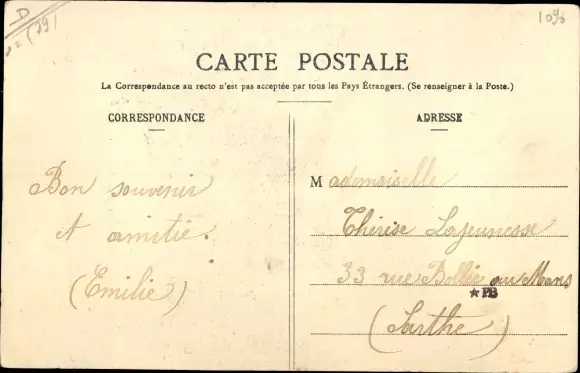 D
(79)
1096
CARTE POSTALE
La Correspondance au recto n'est pas acceptée par tous les Pays Étrangers. (Se renseigner à la Poste.)
CORRESPONDANCE
Bon souvenir
et amitié.
(Emilie)
ADRESSE
Mademoiselle
Thérèse Lajeunesse
33 rue Bollée au Mans
★PB
(Sarthe)